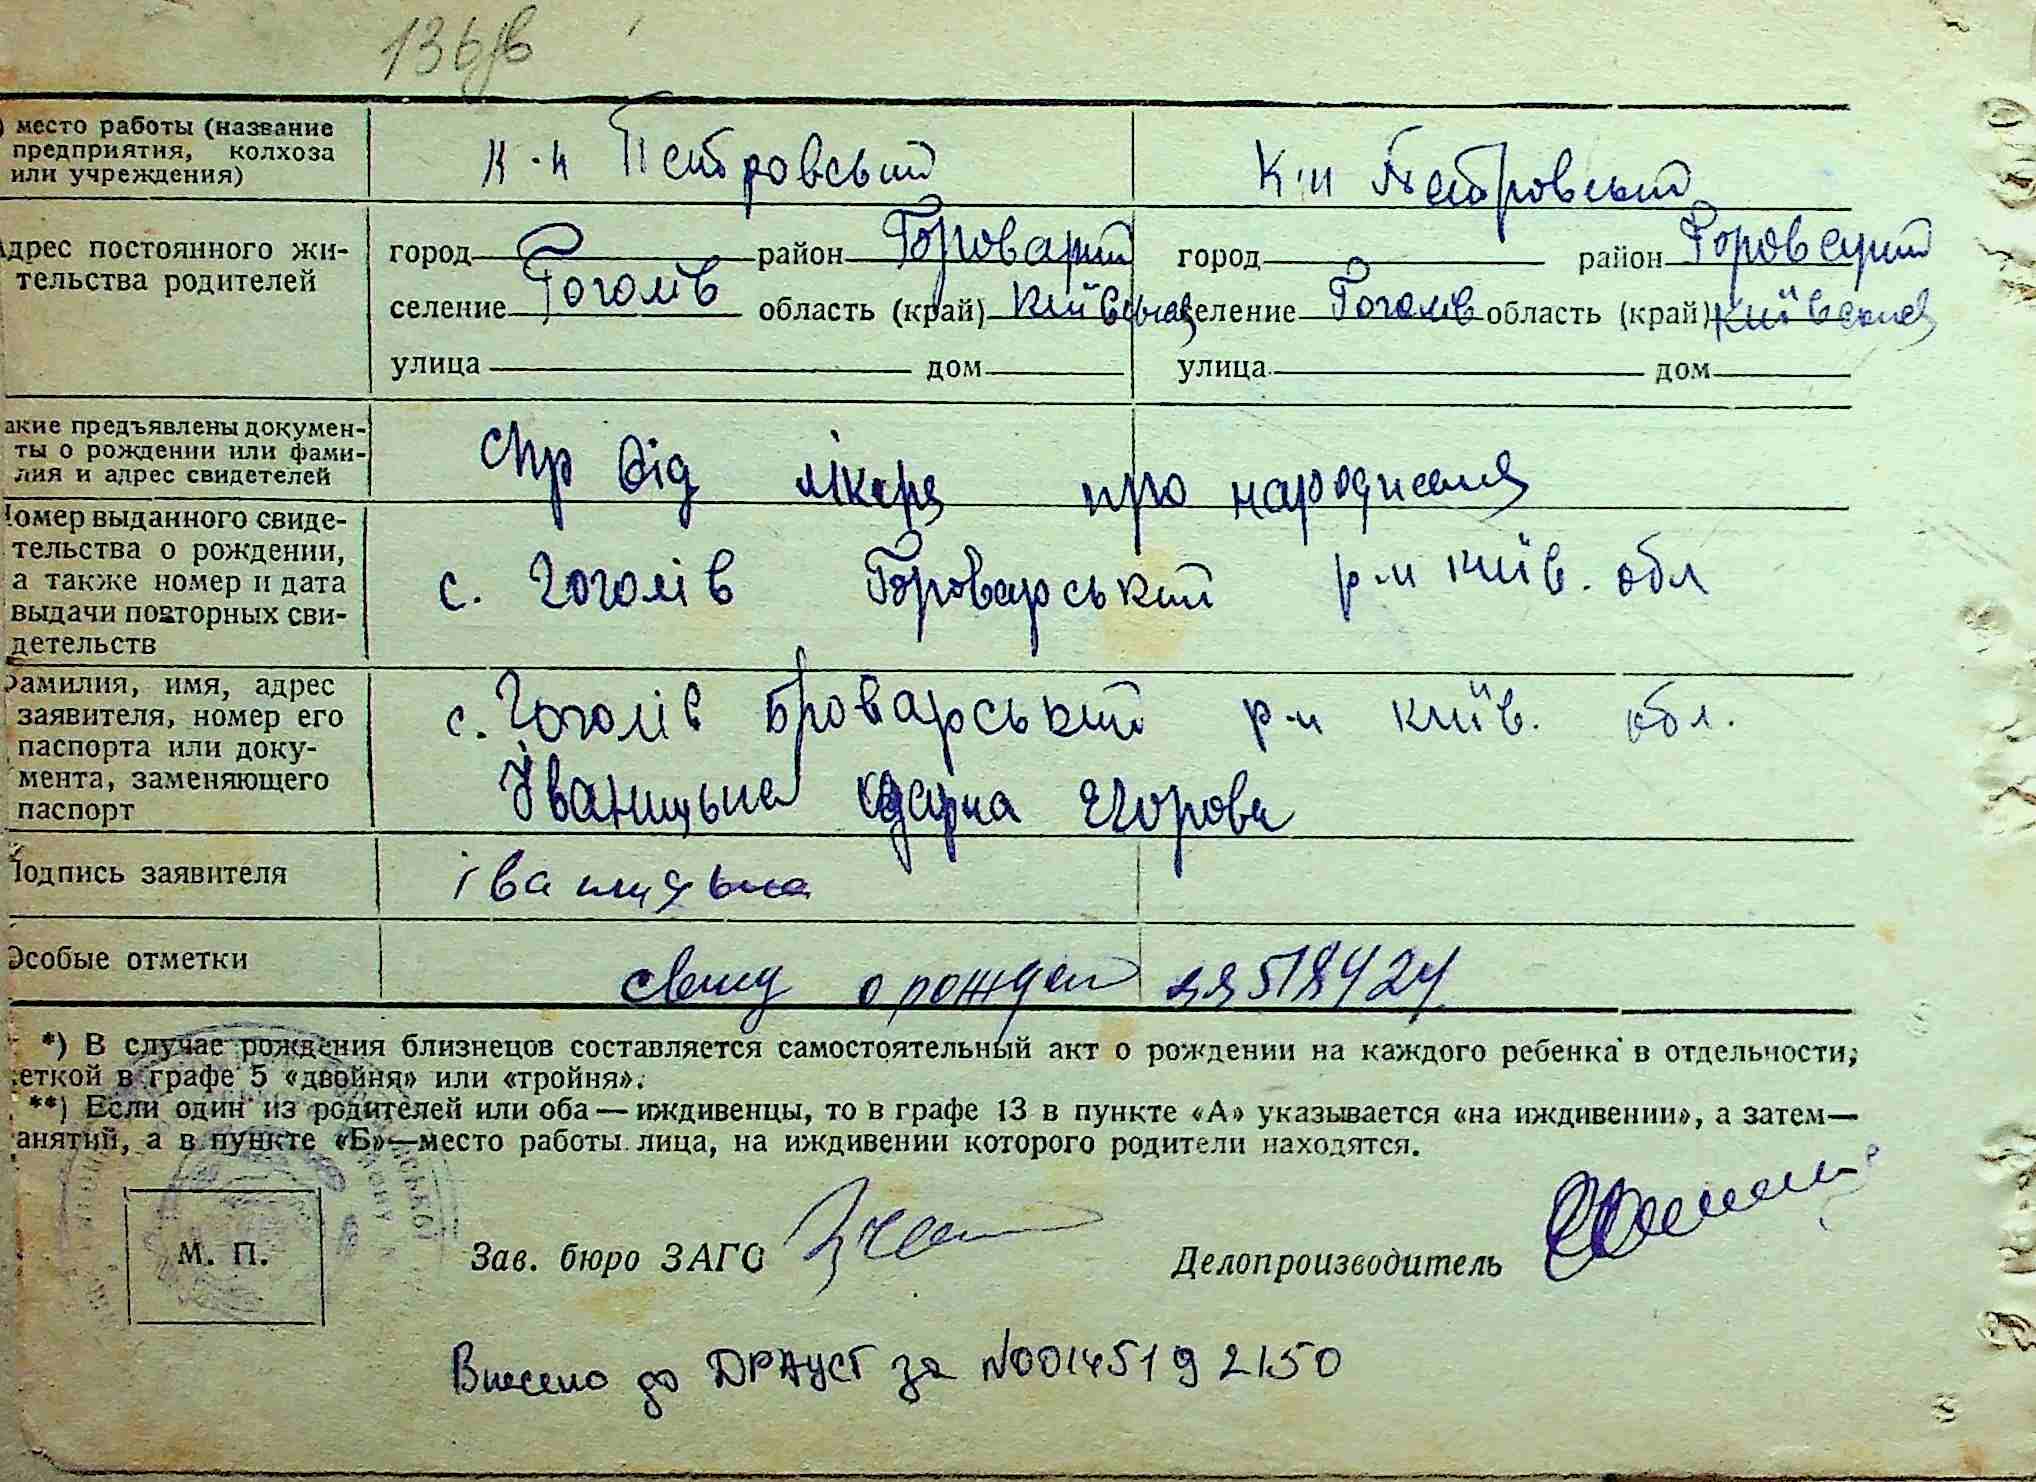 136/в
) место работы (название предприятия, колхоза или учреждения)
к-п Петровський
к-п Петровський
Адрес постоянного жительства родителей
город район Броварский
селение Гоголів область (край) Київська
улица дом
город район Броварский
селение Гоголів область (край) Київська
улица дом
акие предъявлены документы о рождении или фамилия и адрес свидетелей
спр від лікаря про народження
Номер выданного свидетельства о рождении, а также номер и дата выдачи повторных свидетельств
с. Гоголів Броварський р-н Київ. обл
Фамилия, имя, адрес заявителя, номер его паспорта или документа, заменяющего паспорт
с. Гоголів Броварський р-н Київ. обл.
Іваницька Одарка Егоровн
Подпись заявителя
іваницька
Особые отметки
о рожден яя 518424
*) В случае рождения близнецов составляется самостоятельный акт о рождении на каждого ребенка в отдельности,
еткой в графе 5 «двойня» или «тройня».
**) Если один из родителей или оба — иждивенцы, то в графе 13 в пункте «А» указывается «на иждивении», а затем—
анятий, а в пункте «Б»—место работы лица, на иждивении которого родители находятся.
М. П.
Зав. бюро ЗАГС
Делопроизводитель
Внесено до ДРАЦСГ за N00145192150